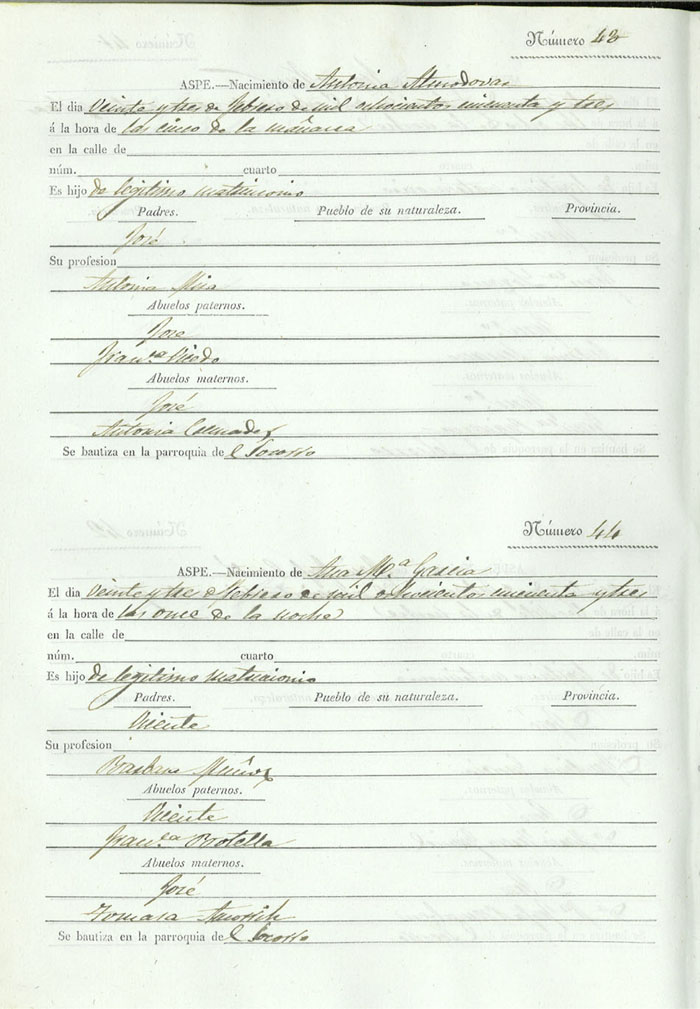 Número 43
ASPE.—Nacimiento de Antonia Almodovar
El dia Veinte y tres de febrero de mil ochocientos cincuenta y tres
á la hora de las cinco de la mañana
en la calle de
núm. cuarto
Es hijo de legitimo matrimonio
Padres. Pueblo de su naturaleza. Provincia.
José
Su profesion
Antonia Mira
Abuelos paternos.
José
Fran.ca
Abuelos maternos.
José
Antonia
Se bautiza en la parroquia del Socorro
Número 44
ASPE.—Nacimiento de Ana M.ª Garcia
El dia Veinte y tres de febrero de mil ochocientos cincuenta y tres
á la hora de las once de la noche
en la calle de
núm. cuarto
Es hijo de legitimo matrimonio
Padres. Pueblo de su naturaleza. Provincia.
Vicente
Su profesion
Barbara Muñoz
Abuelos paternos.
Vicente
Fran.ca Botella
Abuelos maternos.
José
Tomasa
Se bautiza en la parroquia del Socorro